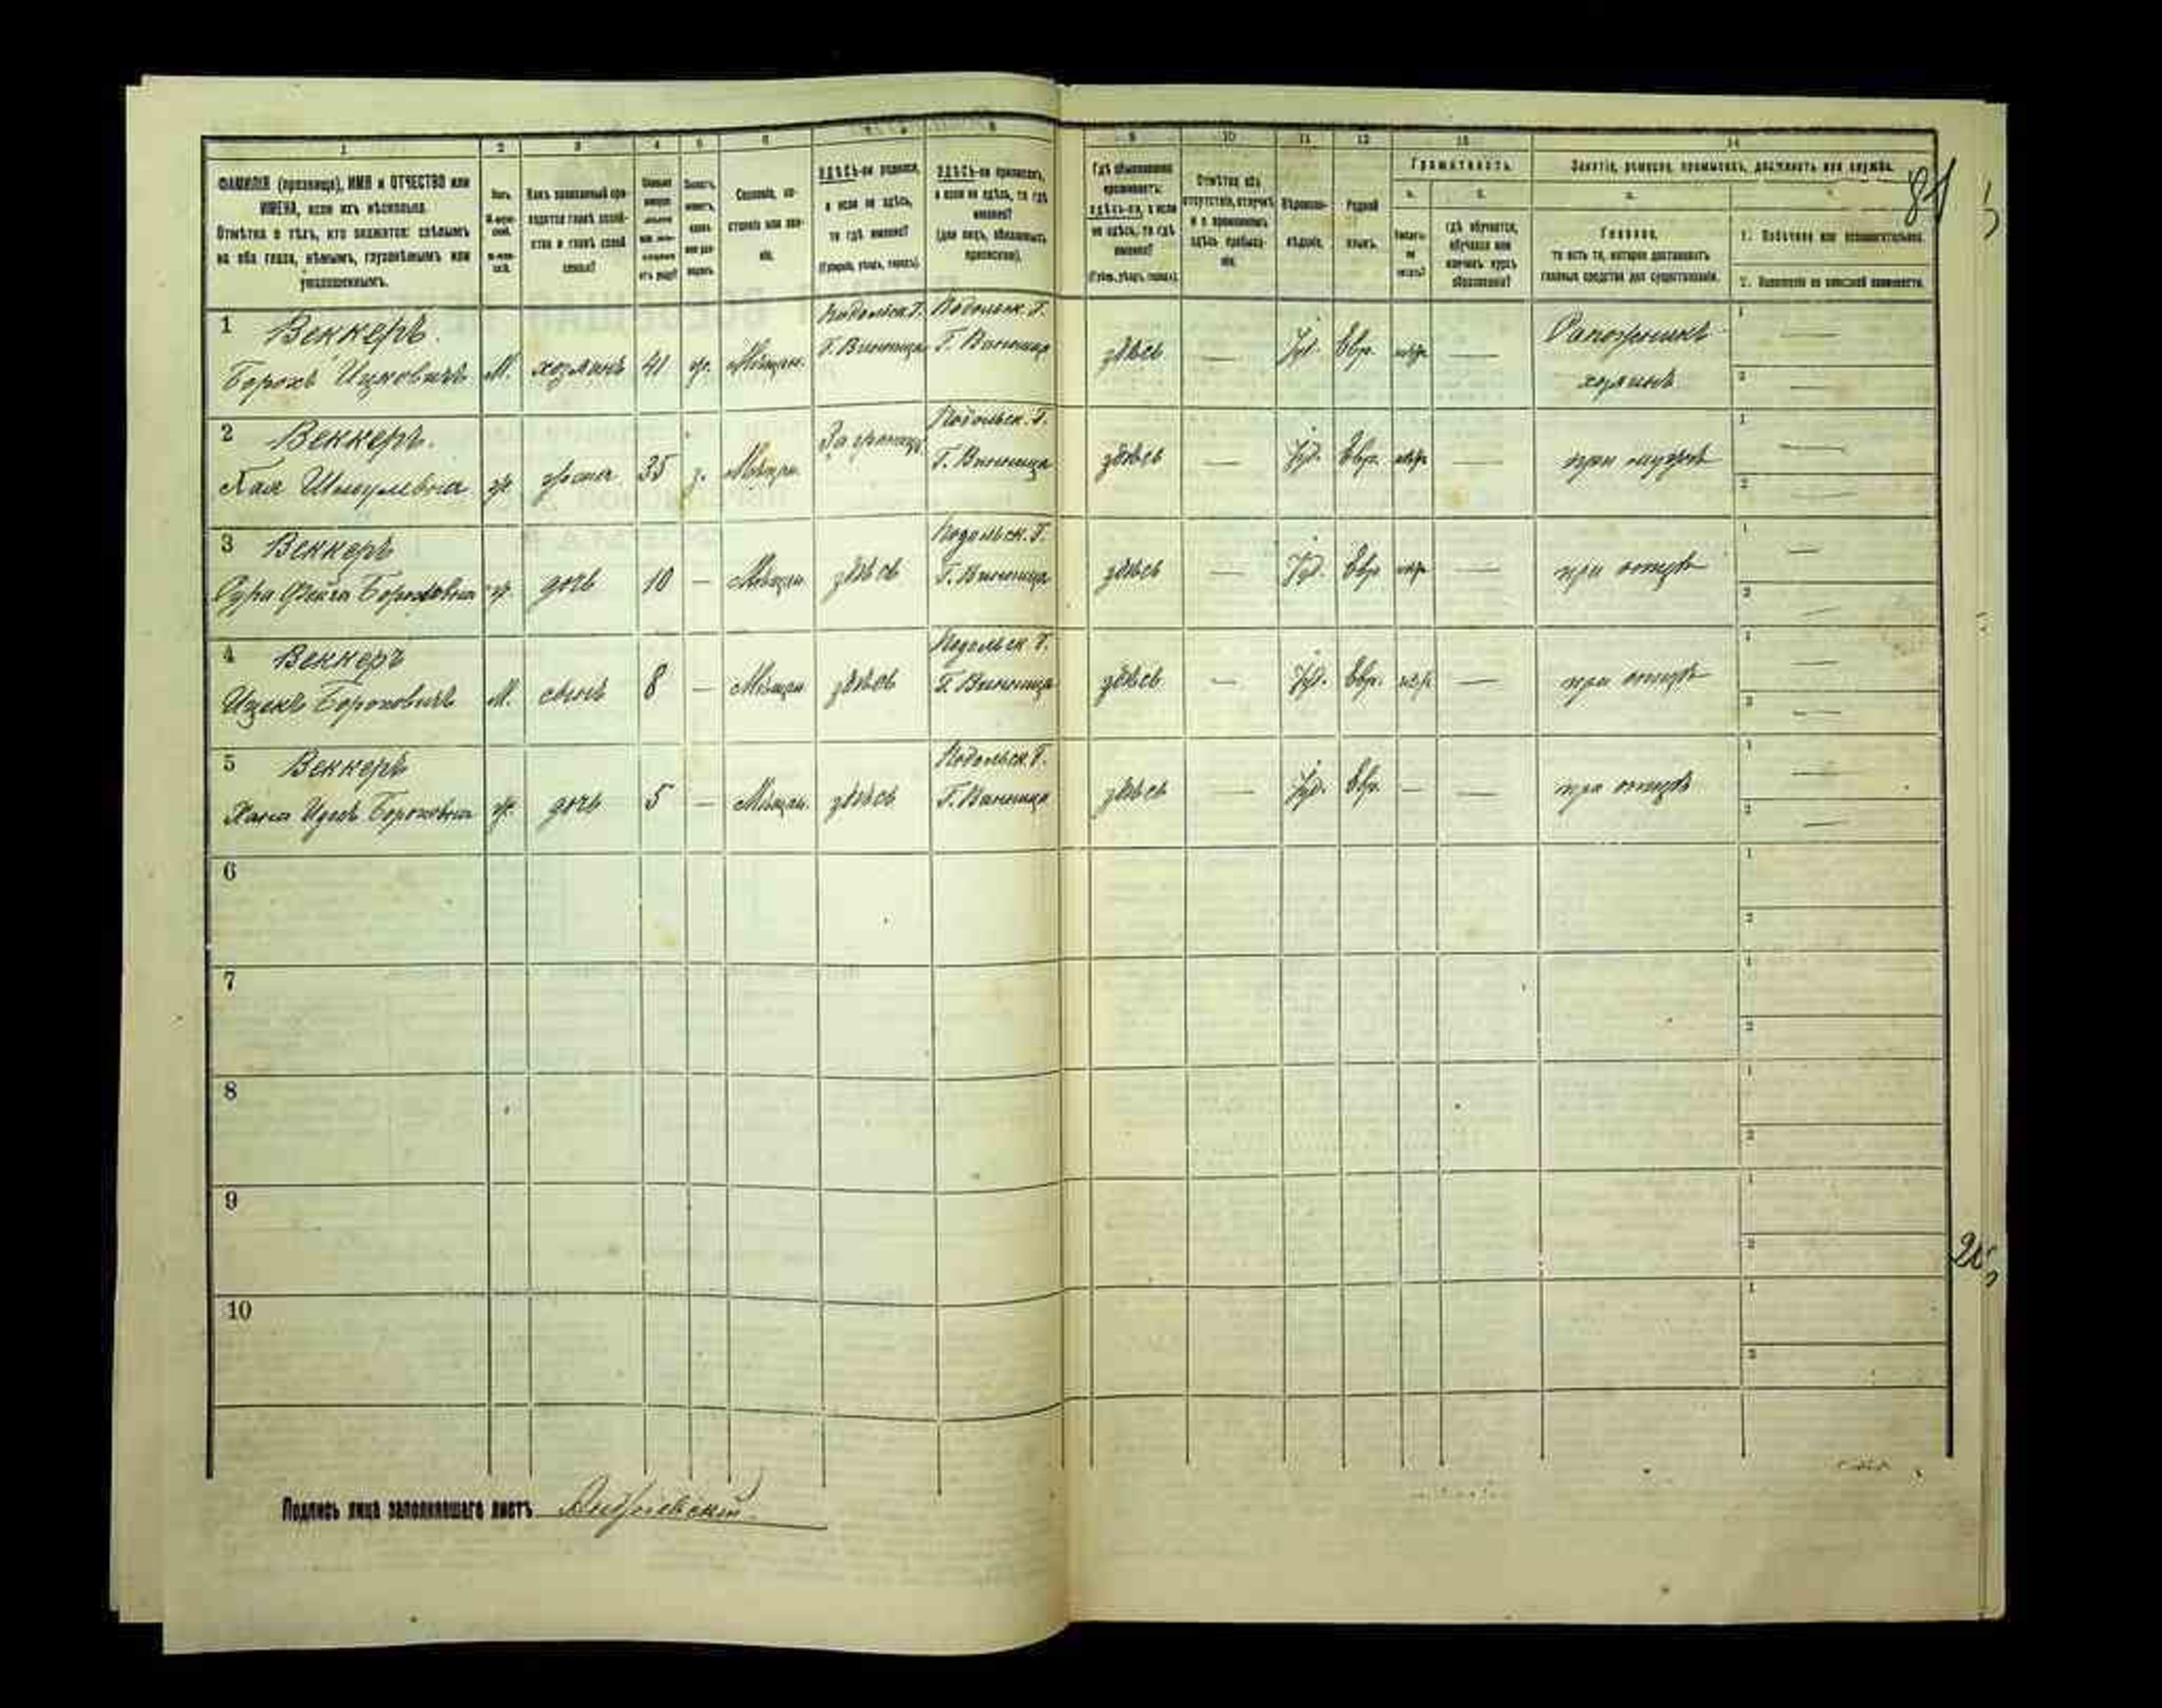 1 2 3 4 5 6 7 8 9 10 11 12 13 14
ФАМИЛІЯ (прозвище), ИМЯ и ОТЧЕСТВО или
ИМЕНА, если ихъ нѣсколько.
Отмѣтка о тѣхъ, кто окажется: слѣпымъ
на оба глаза, нѣмымъ, глухонѣмымъ или
умалишеннымъ.
Полъ.
Какъ записанный при-
ходится главѣ хозяй-
ства и главѣ своей
семьи?
Сословіе, со-
стояніе или зва-
ніе.
ЗДѢСЬ-ли родился,
а если не здѣсь,
то гдѣ именно?
(Губернія, уѣздъ, городъ).
ЗДѢСЬ-ли приписанъ,
а если не здѣсь, то гдѣ
именно?
(для лицъ, обязанныхъ
припискою).
Гдѣ обыкновенно
проживаетъ:
здѣсь-ли, а если
не здѣсь, то гдѣ
именно?
(Губ., уѣздъ, городъ).
Отмѣтка объ
отсутствіи, отлучкѣ
и о временномъ
здѣсь пребыва-
ніи.
Вѣроиспо-
вѣданіе.
Родной
языкъ.
Грамотность.
а. б.
Умѣетъ-
ли
читать?
гдѣ обучается,
обучался или
кончилъ курсъ
образованія?
Занятіе, ремесло, промыселъ, должность или служба.
а.
Главное,
то есть то, которое доставляетъ
главныя средства для существованія.
1. Побочное или вспомогательное.
2. Положеніе по воинской повинности.
81
1 Веккеръ.
Борохъ Ицковичъ М. хозяинъ 41 ж. Мѣщан. Подольск. Г. Г. Винница Подольск. Г. Г. Винница здѣсь — Іуд. Евр. — Сапожникъ хозяинъ 1 — 2 —
2 Веккеръ.
Хая Шмулевна ж жена 35 з. Мѣщан. За границ. Подольск. Г. Г. Винница здѣсь — Іуд. Евр. — при мужѣ 1 — 2 —
3 Веккеръ
Сура Фейга Бороховна ж. дочь 10 — Мѣщан. здѣсь Подольск. Г. Г. Винница здѣсь — Іуд. Евр — при отцѣ 1 — 2 —
4 Веккеръ
Ицекъ Бороховичъ М. сынъ 8 — Мѣщан. здѣсь Подольск. Г. Г. Винница здѣсь — Іуд. Евр. — при отцѣ 1 — 2 —
5 Веккеръ
Хана Бороховна ж. дочь 5 — Мѣщан. здѣсь Подольск. Г. Г. Винница здѣсь — Іуд. Евр. — — при отцѣ 1 — 2 —
6 1 2
7 1 2
8 1 2
9 1 2
10 1 2
Подпись лица заполнявшаго листъ Андріевскій